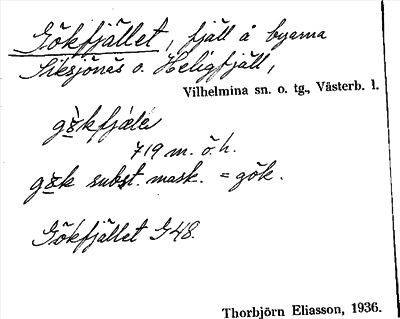 Gökfjället, fjäll å byarna
Siksjönäs o. Heligfjäll,
Vilhelmina sn. o. tg., Västerb. l.
719 m. ö. h.
subst. mask. = gök.
Gökfjället G48.
Thorbjörn Eliasson, 1936.